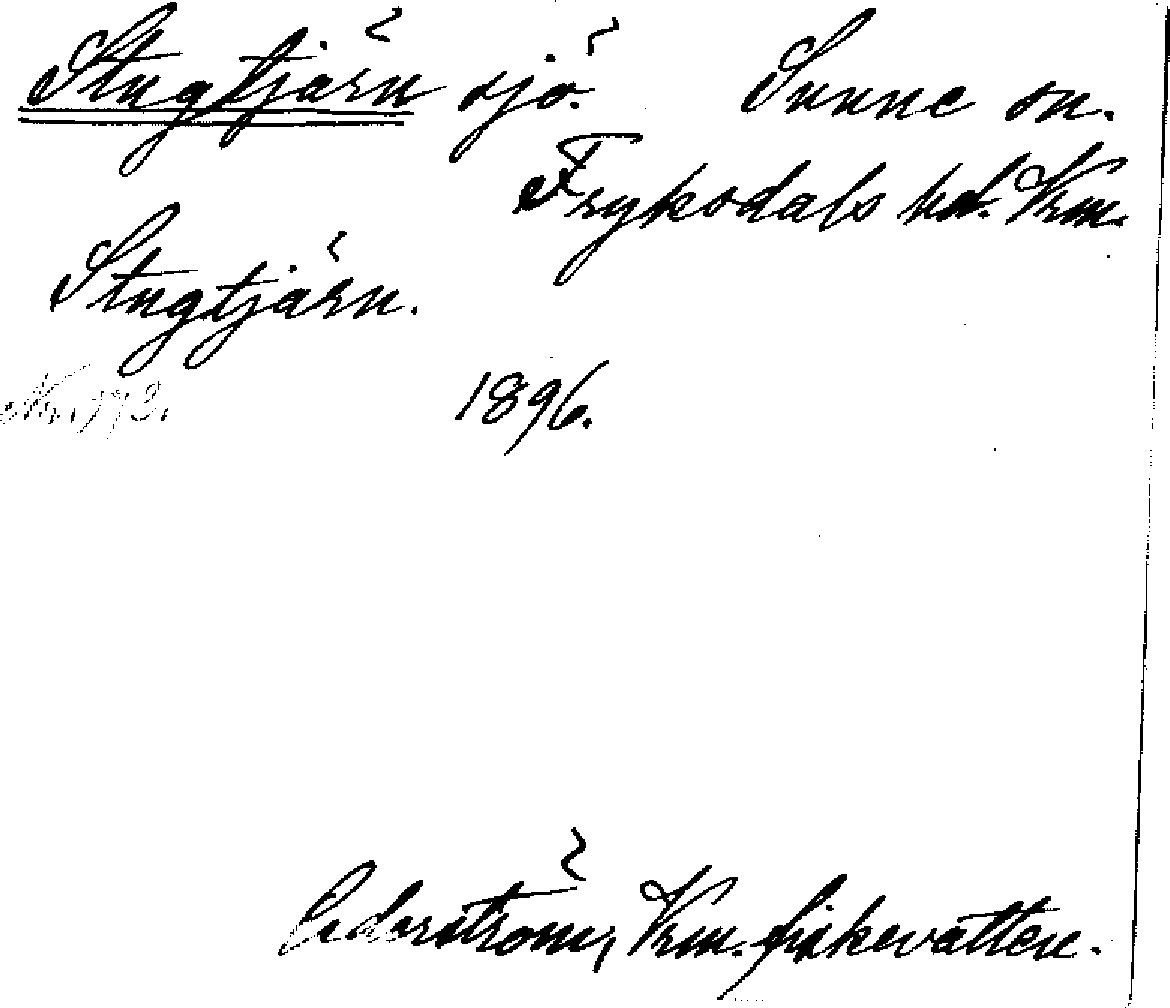 Stugtjärn sjö. Sunne sn.
Fryksdals hd. Vrm.
Stugtjärn.
1896.
Cederström, Vrm. fiskevatten.